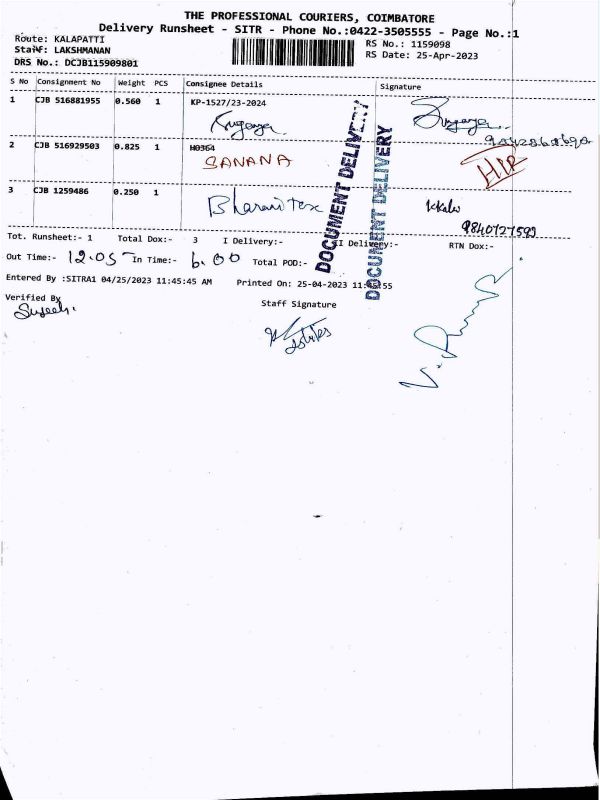 THE PROFESSIONAL COURIERS, COIMBATORE
Delivery Runsheet - SITR - Phone No.:0422-3505555 - Page No.:1
Route: KALAPATTI
Staff: LAKSHMANAN
DRS No.: DCJB115909801
RS No.: 1159098
RS Date: 25-Apr-2023
S No Consignment No Weight PCS Consignee Details Signature
1 CJB 516881955 0.560 1 KP-1527/23-2024
2 CJB 516929503 0.825 1 H0364
SANANA
3 CJB 1259486 0.250 1 Bharani Tex
9840727599
DOCUMENT DELIVERY
DOCUMENT DELIVERY
Tot. Runsheet:- 1 Total Dox:- 3 I Delivery:- II Delivery:- RTN Dox:-
Out Time:- 12.05 In Time:- 6.00 Total POD:-
Entered By :SITRA1 04/25/2023 11:45:45 AM Printed On: 25-04-2023 11:45:55
Verified By
Staff Signature